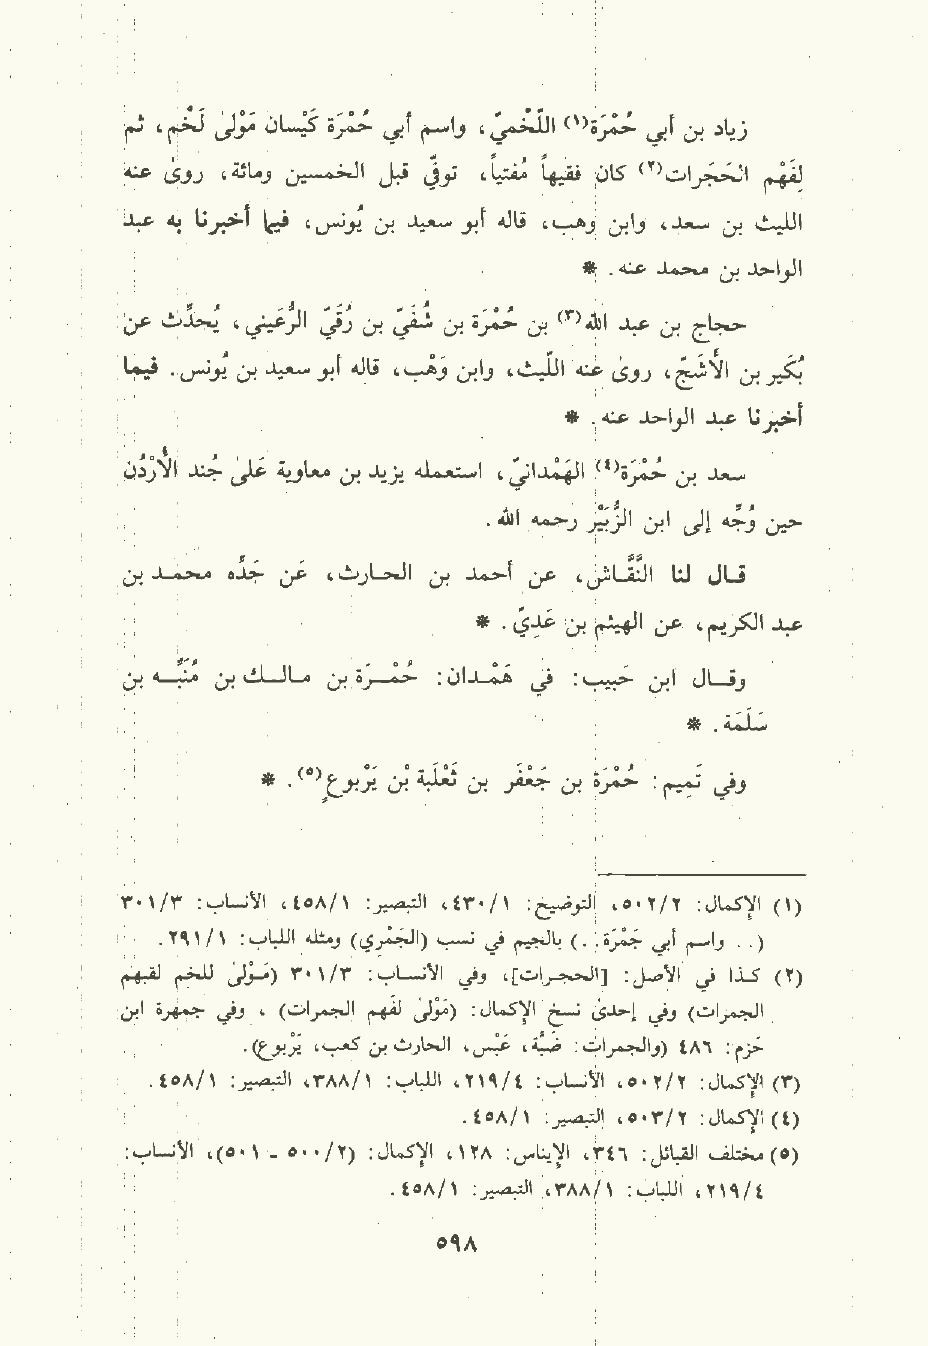 زياد بن أبي حُمْرَة(١) اللَّخْمِيّ، واسم أبي حُمْرَة كَيْسان مَوْلىٰ لَخْم، ثم
لِفَهْم الحَجَرات(٢) كان فقيهاً مُفتياً، توفِّي قبل الخمسين ومائة، روىٰ عنه
الليث بن سعد، وابن وهب، قاله أبو سعيد بن يُونس، فيما أخبرنا به عبد
الواحد بن محمد عنه. *
حجاج بن عبد الله(٣) بن حُمْرَة بن شُفَيّ بن رُقَيّ الرُّعَيني، يُحدِّث عن
بُكَير بن الأَشَجّ، روىٰ عنه اللَّيث، وابن وَهْب، قاله أبو سعيد بن يُونس. فيما
أخبرنا عبد الواحد عنه. *
سعد بن حُمْرَة(٤) الهَمْدانيّ، استعمله يزيد بن معاوية عَلىٰ جُند الأُرْدُن
حين وُجِّه إلى ابن الزُّبَيْر رحمه الله.
قال لنا النَّقَّاش، عن أحمد بن الحارث، عَن جَدِّه محمد بن
عبد الكريم، عن الهيثم بن عَدِيّ. *
وقال ابن حَبيب: في هَمْدان: حُمْرَة بن مالك بن مُنَبِّه بن
سَلَمَة. *
وفي تَمِيم: حُمْرَة بن جَعْفَر بن ثَعْلَبة بْن يَرْبوعٍ(٥). *
(١) الإكمال: ٥٠٢/٢، التوضيح: ٤٣٠/١، التبصير: ٤٥٨/١، الأنساب: ٣٠١/٣
(.. واسم أبي جَمْرَة..) بالجيم في نسب (الجَمْري) ومثله اللباب: ٢٩١/١.
(٢) كذا في الأصل: [الحجرات]، وفي الأنساب: ٣٠١/٣ (مَوْلىٰ للخم لقبهم
الجمرات) وفي إحدىٰ نسخ الإكمال: (مَوْلىٰ لفَهم الجمرات) ، وفي جمهرة ابن
حَزم: ٤٨٦ (والجمرات: ضَبَّة، عَبْس، الحارث بن كعب، يَرْبوع).
(٣) الإكمال: ٥٠٢/٢، الأنساب: ٢١٩/٤، اللباب: ٣٨٨/١، التبصير: ٤٥٨/١.
(٤) الإكمال: ٥٠٣/٢، التبصير: ٤٥٨/١.
(٥) مختلف القبائل: ٣٤٦، الإيناس: ١٢٨، الإكمال: (٥٠٠/٢ - ٥٠١)، الأنساب:
٢١٩/٤، اللباب: ٣٨٨/١، التبصير: ٤٥٨/١.
٥٩٨